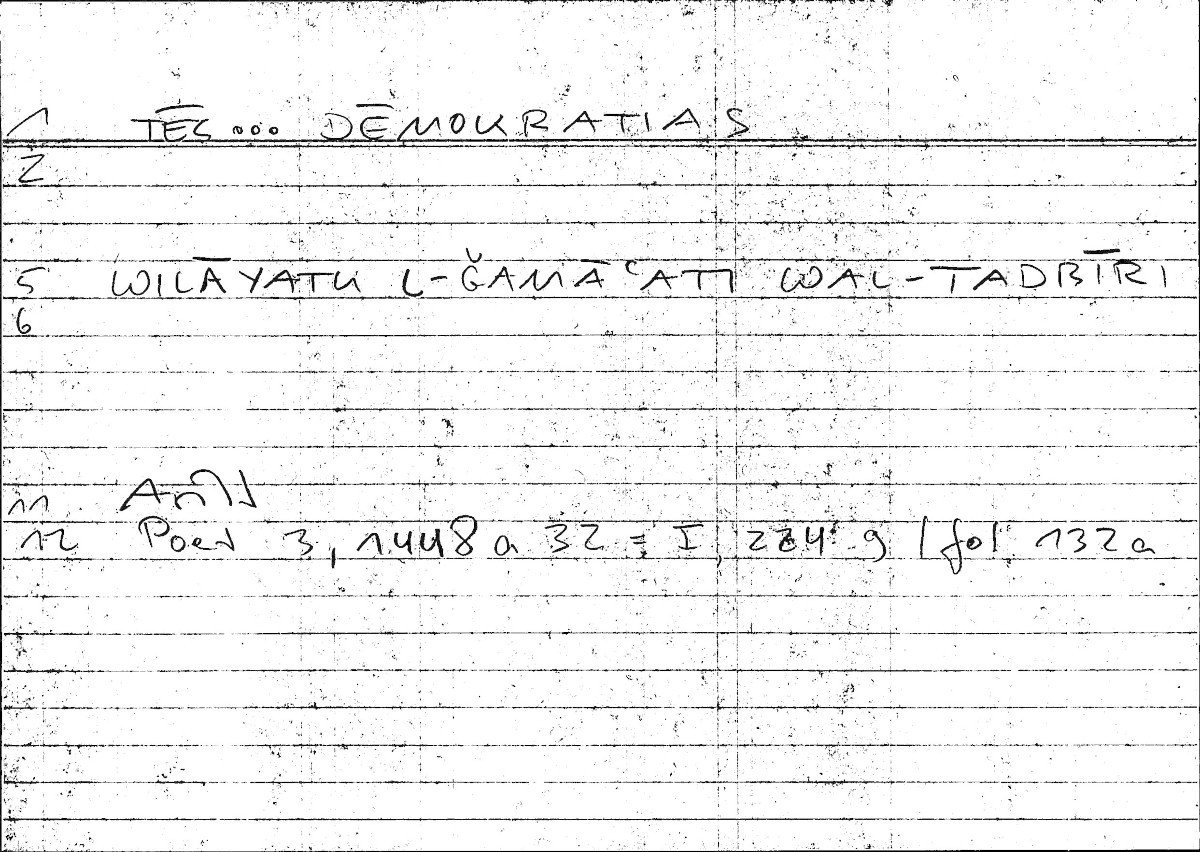 1 TĒS... DĒMOKRATIAS
2
5 WILĀYATU L-ǦAMĀʿATI WAL-TADBĪRI
6
11
12 Poet 3, 1448 a 32 = I, 224 9 / fol 132a